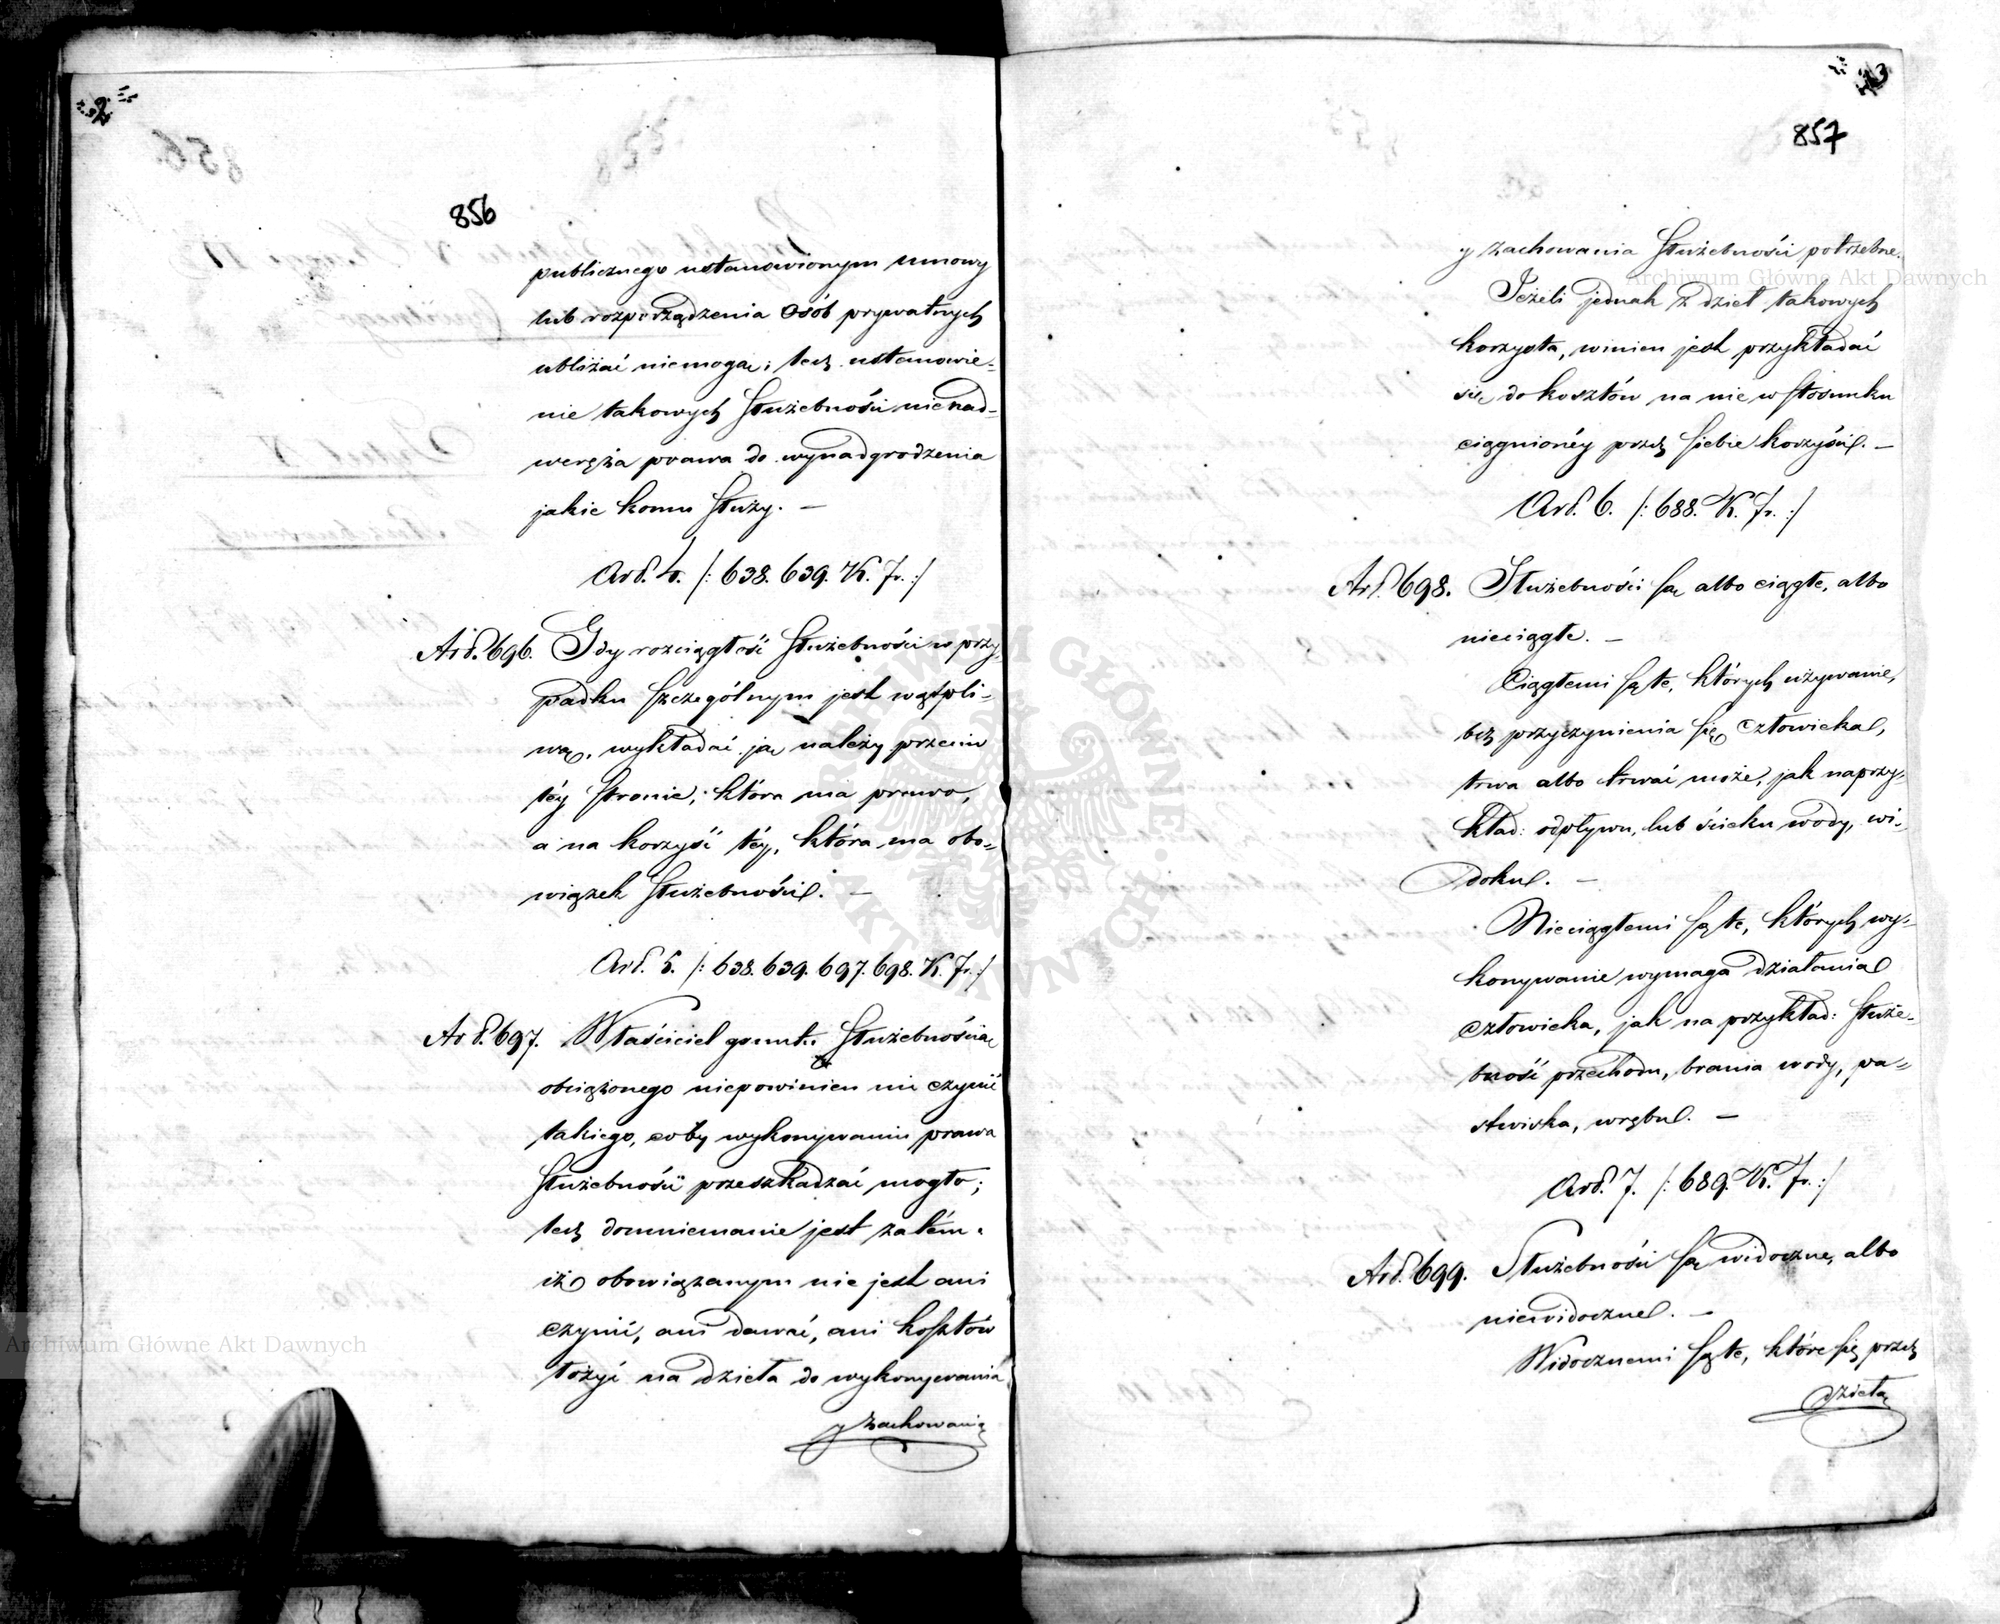 856
publicznego ustanowionym umowy
lub rozporządzenia Osób prywatnych
ubliżać niemogą; lecz ustanowie-
nie takowych służebności nienad-
weręża prawa do wynadgrodzenia
jakie komu służy. —
Art. 4. /: 638. 639. K. Fr. :/
Art. 696. Gdy rozciągłość służebności w przy-
padku szczególnym jest wątpli-
wą, wykładać ją należy przeciw
téy stronie, która ma prawo,
a na korzyść téy, która ma obo-
wiązek służebności. —
Art. 5. /: 638. 639. 697. 698. K. Fr. :/
Art. 697. Właściciel gruntu służebnością
obciążonego niepowinien nic czynić
takiego, coby wykonywaniu prawa
służebności przeszkadzać mogło;
lecz domniemanie jest zatém,
iż obowiązanym nie jest ani
czynić, ani dawać, ani kosztów
łożyć na dzieła do wykonywania
y zachowania
857
y zachowania służebności potrzebne.
Jeżeli jednak z dzieł takowych
korzysta, winien jest przykładać
się do kosztów na nie w stosunku
ciągnionéy przez siebie korzyści. —
Art. 6. /: 688. K. Fr. :/
Art. 698. Służebności są albo ciągłe, albo
nieciągłe. —
Ciągłemi są te, których używanie,
bez przyczynienia się człowieka,
trwa albo trwać może, jak naprzy-
kład: odpływu, lub ścieku wody, wi-
doku. —
Nieciągłemi są te, których wy-
konywanie wymaga działania
człowieka, jak na przykład: służe-
bność przechodu, brania wody, pa-
stwiska, wrębu. —
Art. 7. /: 689. K. Fr. :/
Art. 699. Służebności są widoczne, albo
niewidoczne. —
Widocznemi są te, które się przez
dzieła
Archiwum Główne Akt Dawnych
Archiwum Główne Akt Dawnych
ARCHIWUM GŁÓWNE AKT DAWNYCH